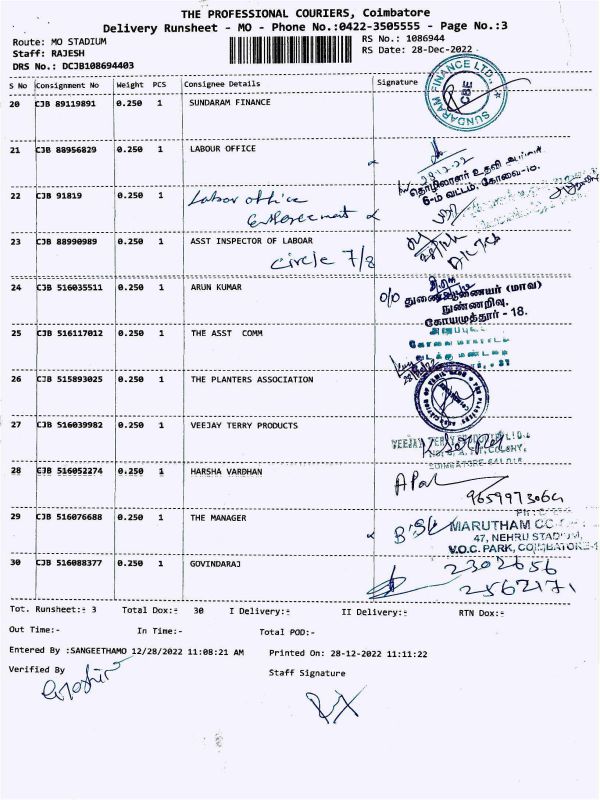 THE PROFESSIONAL COURIERS, Coimbatore
Delivery Runsheet - MO - Phone No.:0422-3505555 - Page No.:3
Route: MO STADIUM
RS No.: 1086944
Staff: RAJESH
RS Date: 28-Dec-2022
DRS No.: DCJB108694403
S No Consignment No Weight PCS Consignee Details Signature
20 CJB 89119891 0.250 1 SUNDARAM FINANCE
SUNDARAM FINANCE LTD. CBE
21 CJB 88956829 0.250 1 LABOUR OFFICE
28-12-22
தொழிலாளர் உதவி
6-ம் வட்டம், கோவை-18.
22 CJB 91819 0.250 1 Labor office
23 CJB 88990989 0.250 1 ASST INSPECTOR OF LABOAR
Circle 7/8
24 CJB 516035511 0.250 1 ARUN KUMAR
O/O துணைஆணையர் (மாவ)
நுண்ணறிவு,
கோயமுத்தூர் - 18.
25 CJB 516117012 0.250 1 THE ASST COMM
26 CJB 515893025 0.250 1 THE PLANTERS ASSOCIATION
THE PLANTERS ASSOCIATION OF TAMIL NADU
27 CJB 516039982 0.250 1 VEEJAY TERRY PRODUCTS
28 CJB 516052274 0.250 1 HARSHA VARDHAN
9659973064
29 CJB 516076688 0.250 1 THE MANAGER
MARUTHAM
47, NEHRU STADIUM,
V.O.C. PARK, COIMBATORE-1
30 CJB 516088377 0.250 1 GOVINDARAJ
2302656
2562171
Tot. Runsheet:- 3 Total Dox:- 30 I Delivery:- II Delivery:- RTN Dox:-
Out Time:- In Time:- Total POD:-
Entered By :SANGEETHAMO 12/28/2022 11:08:21 AM Printed On: 28-12-2022 11:11:22
Verified By Staff Signature